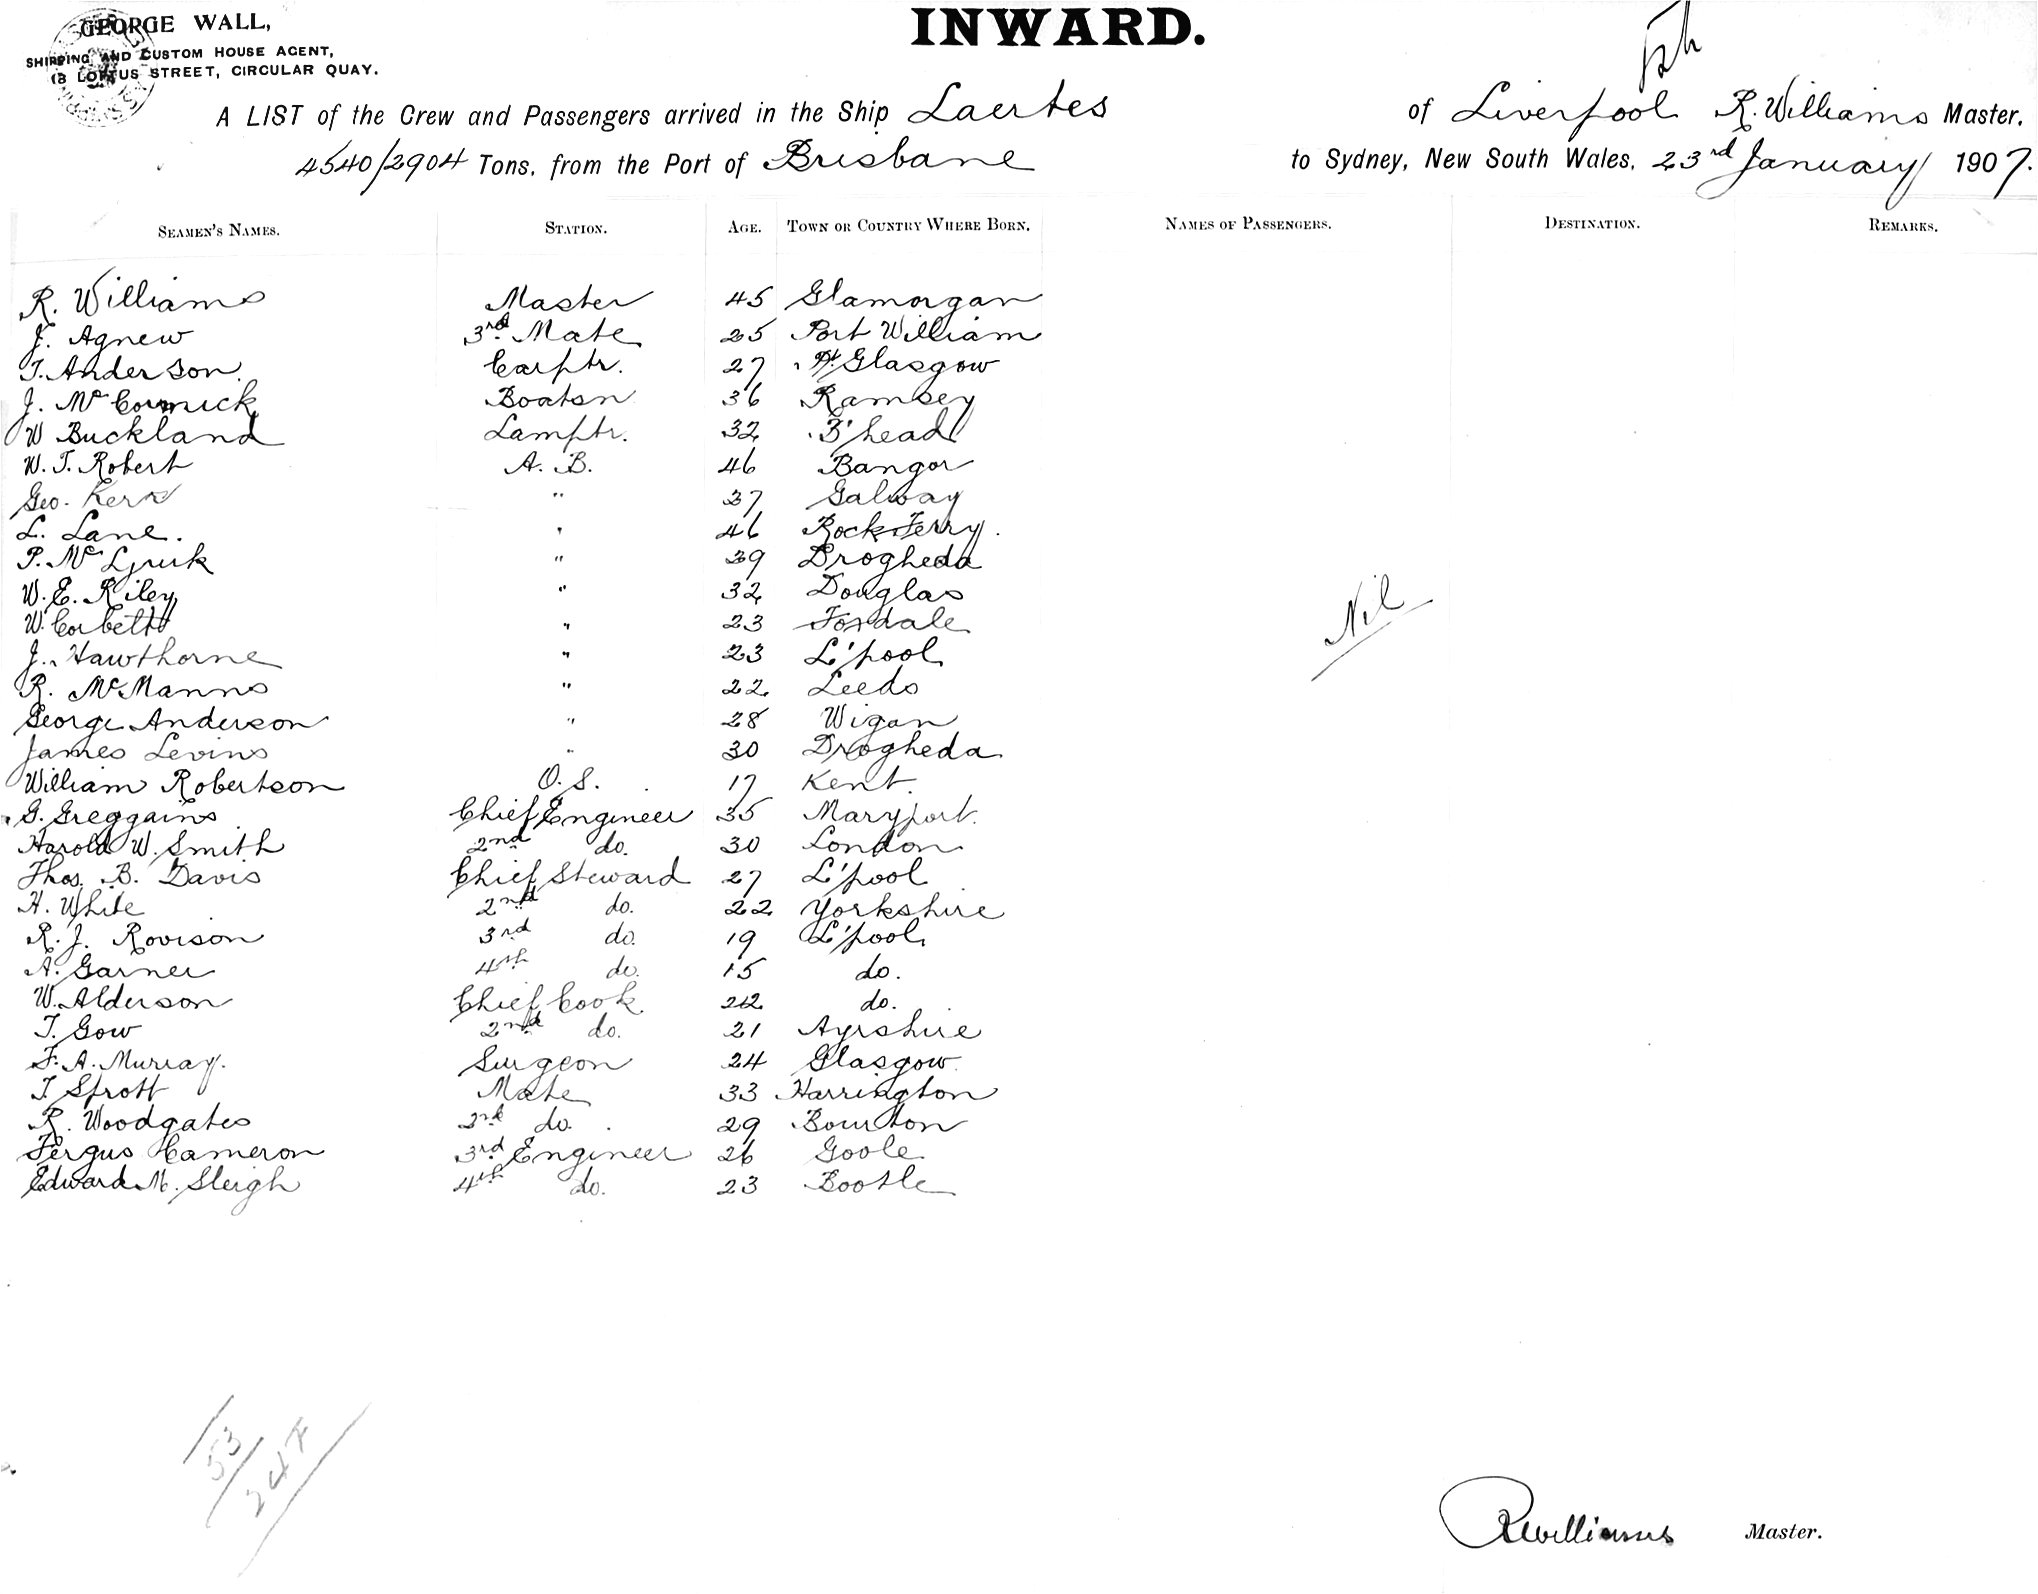 GEORGE WALL,
SHIPPING AND CUSTOM HOUSE AGENT,
13 LOFTUS STREET, CIRCULAR QUAY.
INWARD.
A LIST of the Crew and Passengers arrived in the Ship Laertes of Liverpool R. Williams Master,
4540/2904 Tons, from the Port of Brisbane to Sydney, New South Wales, 23rd January 1907.
SEAMEN'S NAMES. STATION. AGE. TOWN OR COUNTRY WHERE BORN. NAMES OF PASSENGERS. DESTINATION. REMARKS.
R. Williams Master 45 Glamorgan
J. Agnew 3rd Mate 25 Port William
T. Anderson Carptr. 27 Pt. Glasgow
J. McCormick Boatsn 36 Ramsey
W Buckland Lamptr. 32 B'head
W. T. Robert A. B. 46 Bangor
Geo. Kerr " 37 Galway
L. Lane. " 46 Rock Ferry.
P. Mc " 39 Drogheda
W. E. Riley " 32 Douglas
W. Corbett " 23 Foxdale
J. Hawthorne " 23 L'pool
R. McManns " 22 Leeds
George Anderson " 28 Wigan
James Levins " 30 Drogheda
William Robertson O. S. 17 Kent.
G. Greggains Chief Engineer 35 Maryport.
Harold W. Smith 2nd do. 30 London
Thos. B. Davis Chief Steward 27 L'pool
H. White 2nd do. 22 Yorkshire
R. J. Rovison 3rd do. 19 L'pool
A. Garner 4th do. 15 do.
W. Alderson Chief Cook 22 do.
T. Gow 2nd do. 21 Ayrshire
F. A. Murray. Surgeon 24 Glasgow
T Sprott Mate 33 Harrington
R. Woodgates 2nd do. 29 Bourton
Fergus Cameron 3rd Engineer 26 Goole
Edward M. Sleigh 4th do. 23 Bootle
Nil
53
247
RWilliams Master.